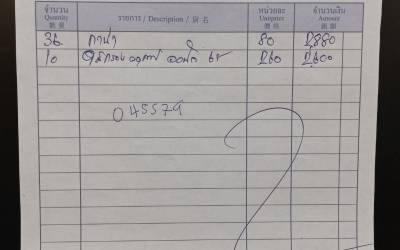 จำนวน รายการ / Description / 副名 หน่วยละ จำนวนเงิน
Quantity Unitprice Amount
數量 價格 銀額
36 กาน้ำ 80 2,880
10 260 2,600
045579